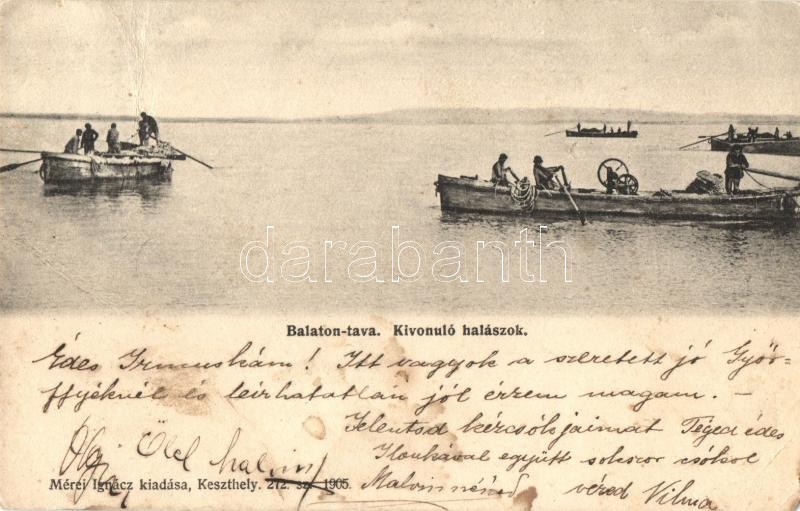 darabanth
Balaton-tava. Kivonuló halászok.
Édes Irmuskám! Itt vagyok a szeretett jó Győr-
ffyéknél és leirhatatlan jól érzem magam. –
Jelentsd kézcsókjaimat Téged édes
Ilonkával együtt sokszor csókol
Ölel
Malvinnénéd véred Vilma
Mérei Ignácz kiadása, Keszthely. 272. sz. 1905.